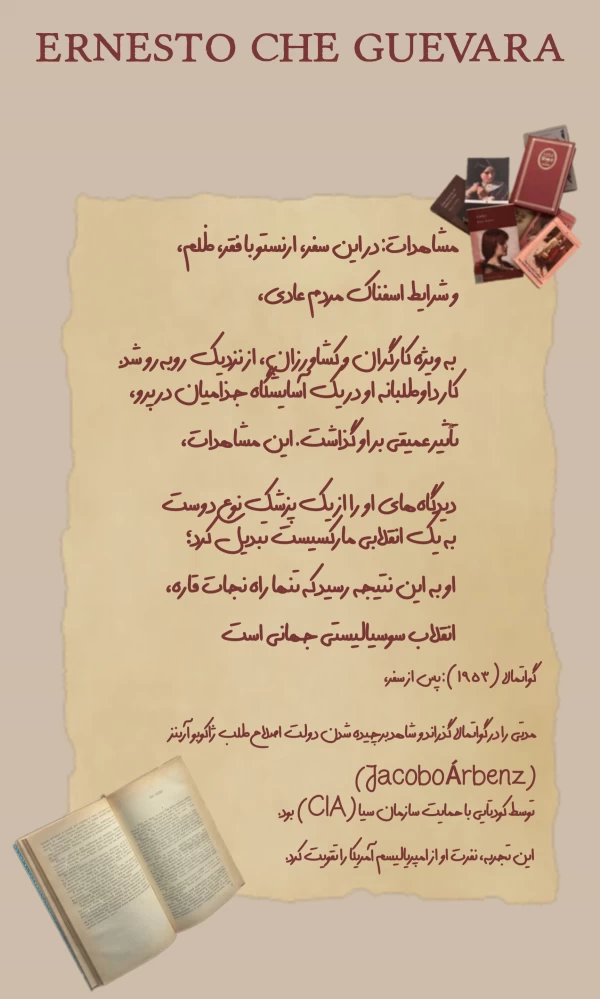 ERNESTO CHE GUEVARA
مشاهدات: در این سفر، ارنستو با فقر، ظلم،
و شرایط اسفناک مردم عادی،
به ویژه کارگران و کشاورزان، از نزدیک روبه‌رو شد.
کار داوطلبانه او در یک آسایشگاه جذامیان در پرو،
تأثیر عمیقی بر او گذاشت. این مشاهدات،
دیدگاه‌های او را از یک پزشک نوع دوست
به یک انقلابی مارکسیست تبدیل کرد؛
او به این نتیجه رسید که تنها راه نجات قاره،
انقلاب سوسیالیستی جهانی است
گواتمالا (۱۹۵۳): پس از سفر،
مدتی را در گواتمالا گذراند و شاهد برچیده شدن دولت اصلاح طلب ژاکوبو آربنز
(Jacobo Árbenz)
توسط کودتایی با حمایت سازمان سیا (CIA) بود.
این تجربه، نفرت او از امپریالیسم آمریکا را تقویت کرد.